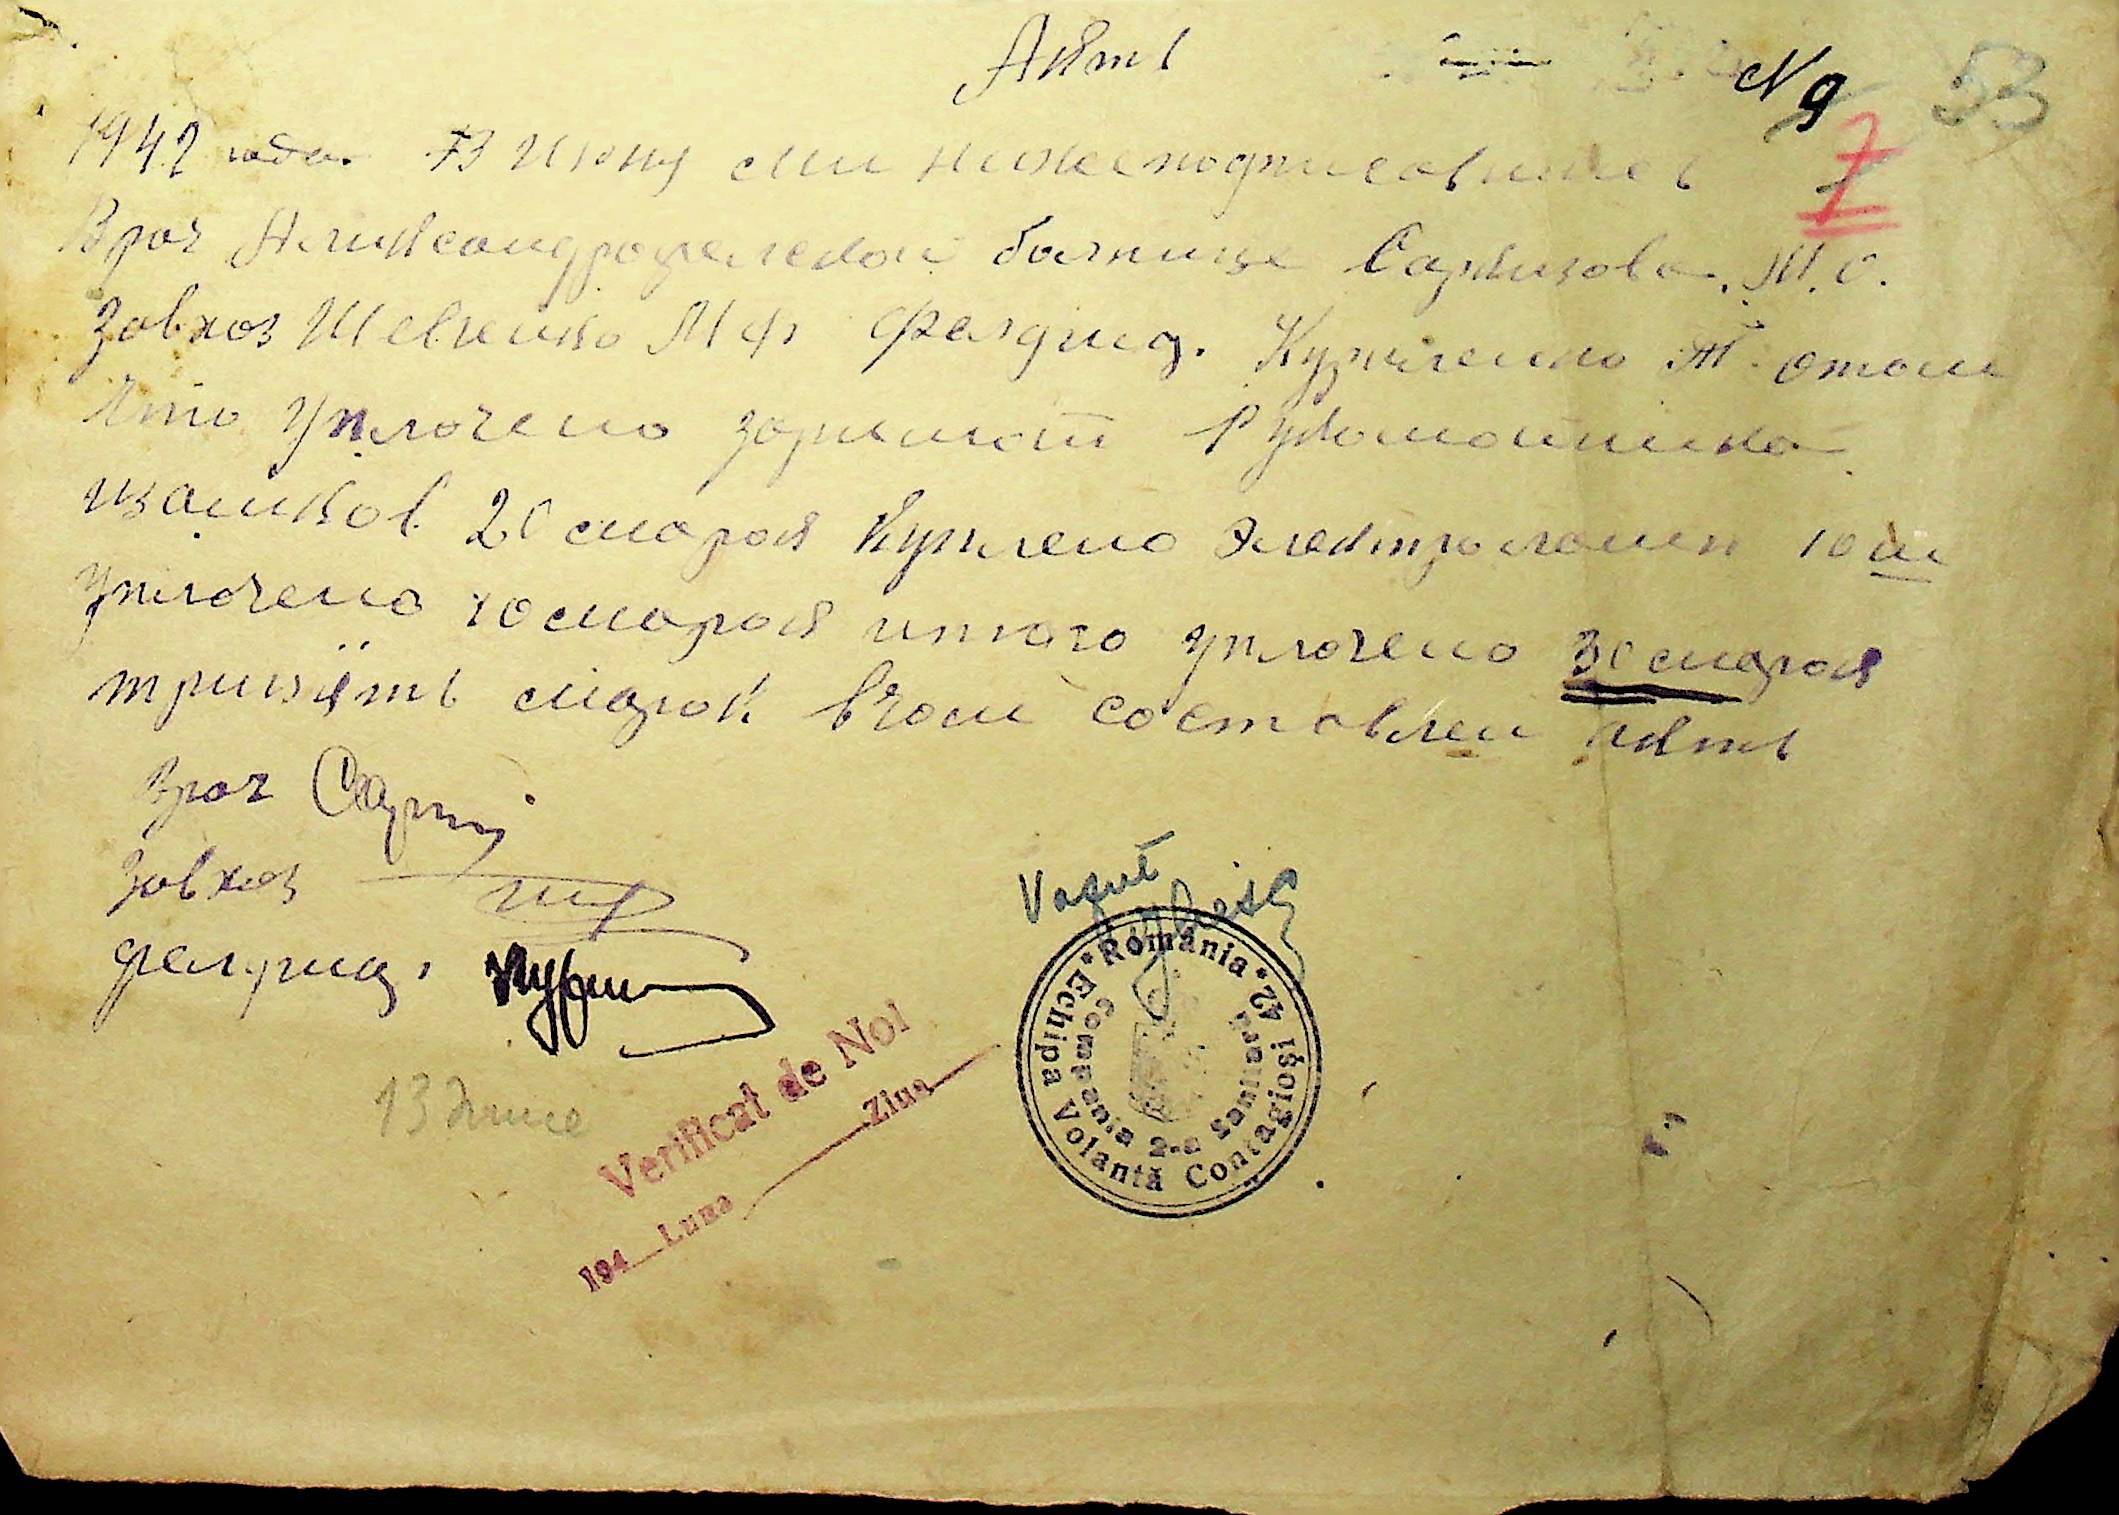 Актъ
N 9
53
7
1942 года 13 Июня мы нижеподписавшиеся
Врач Аликсандрофелской болницы Саркизова. М. С.
Завхоз Шевченко М Ф Фелдшер. Т. отом
Что уплочено за ремонт Рукомойника
20 марак Куплено Электроламп 10 ш
уплочено 10 марак итого уплочено 30 марак
трицять марак вчом составлен актъ
Врач
Завхоз
Фелдшер.
13 Iunie
Vazut
Verificat de Noi
194 Luna Ziua
• România • 42.
Echipa Volantă Contagioşi
Compania 2-a Sanitară